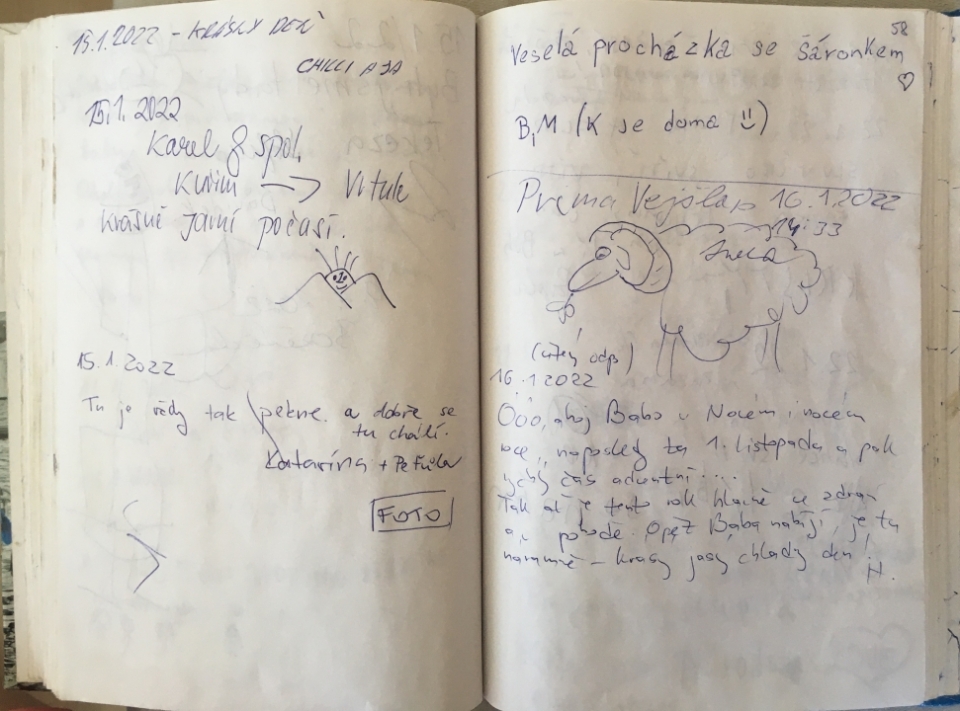 15.1.2022 - KRÁSNÝ DEN
CHILLI A JÁ
15.1.2022
Karel & spol.
Kuřim → Vrtule
krásné jarní počasí.
15.1.2022
Tu je vždy tak pekne. a dobře se
tu chálí.
Katarína + Petrula
FOTO
58
Veselá procházka se Šáronkem ♡
B, M (K se doma)
Prima Vejšlap 16.1.2022
14:33
16.1.2022
Óóó, ahoj Babo v Novém i novém
roce, naposledy tu 1. listopadu a pak
čas adventní....
Tak ať je tento rok hlavně ve zdraví
a v pohodě. Opět Baba nabíjí, je tu
náramně - krásy jasy chladný den!
H.